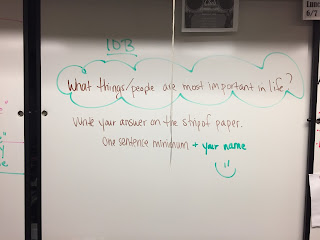 IDB
What things/people are most important in life?
Write your answer on the strip of paper.
One sentence minimum + your name